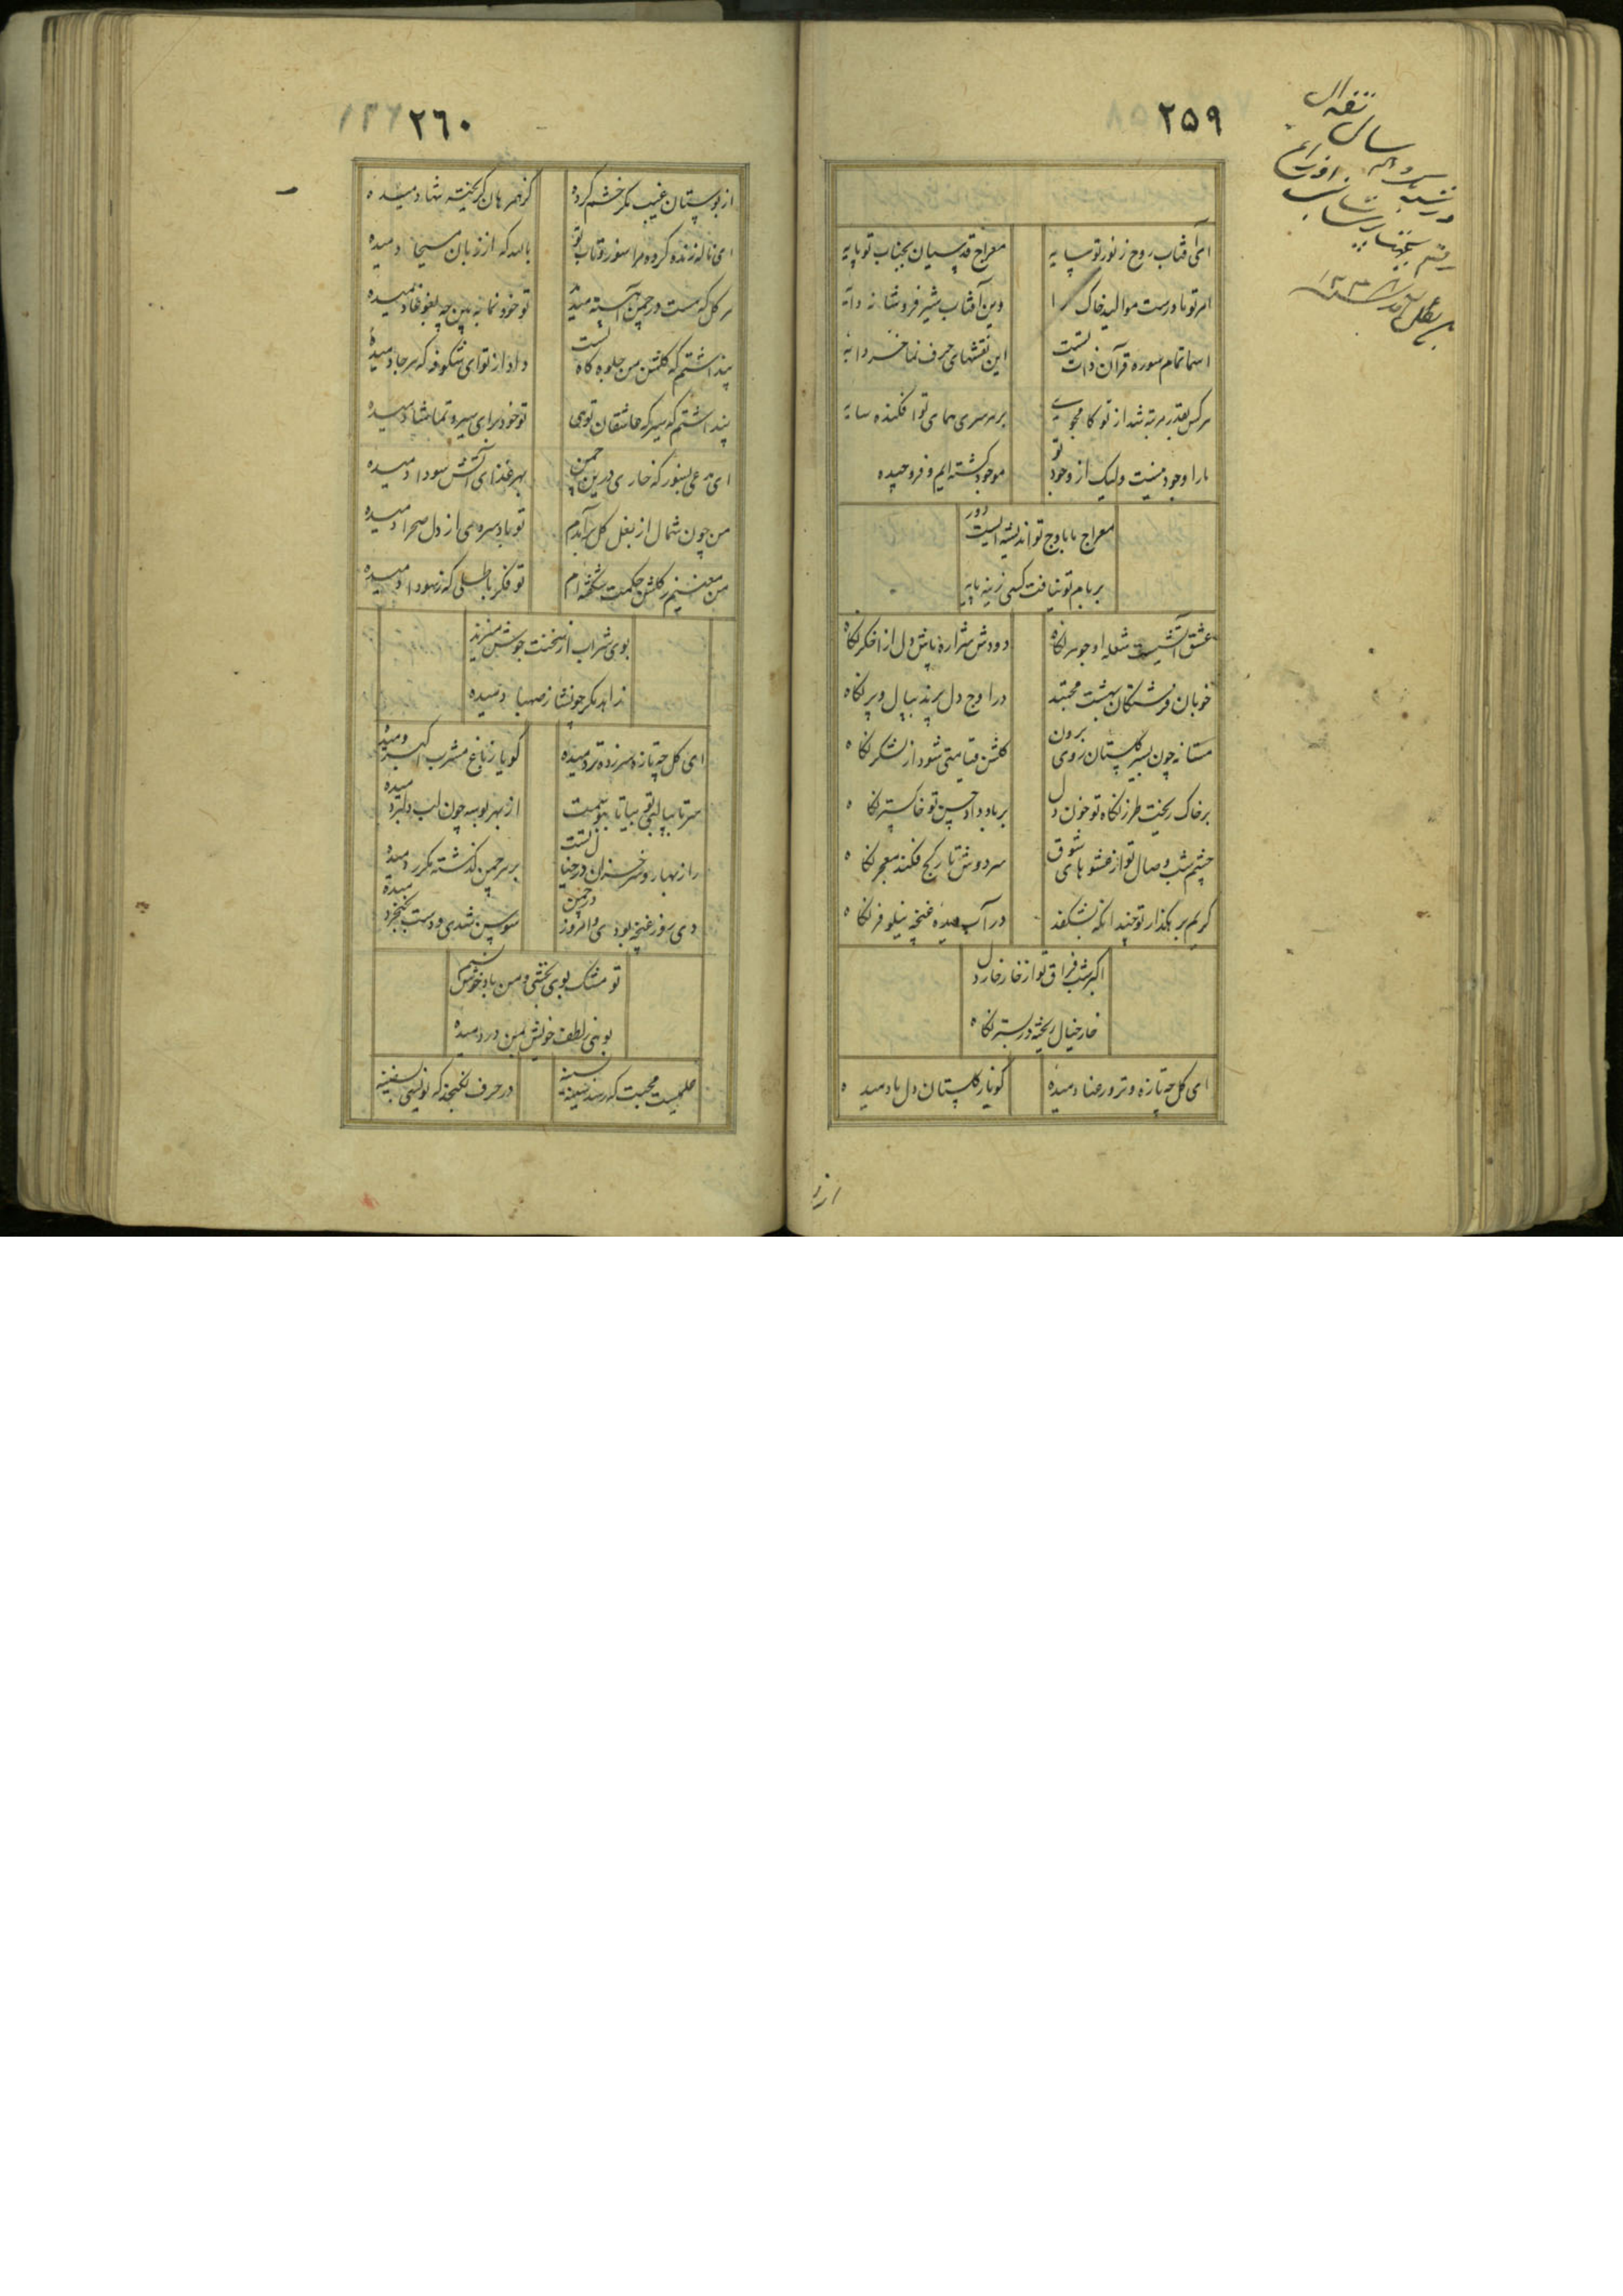 ٢٥٩
ای آفتاب روح ز نور تو سایه
معراج قدسیان بجناب تو پایه
امر تو مادرست موالید خاک را
وین آفتاب شیرفروشانه دایه
اسما تمام سوره قرآن ذات تست
این نقشهای حرف نما خسرو آیه
هرکس بقدر مرتبه شد از تو کامجوی
بر هر سری همای تو افکنده سایه
ما را وجود نیست ولیک از وجود تو
موجود گشته ایم و فروچیده
معراج ما باوج تو اندیشه ایست دور
بر بام تو نیافت کسی زینه پایه
عشق آتشیست شعله او جوهر نگاه
دودش شراره پاش دل از اخگر نگاه
خوبان فرشتگان بهشت محبتند
در اوج دل پرند ببال و پر نگاه
مستانه چون بسیر گلستان روی برون
گلشن قیامتی شود از لشکر نگاه
بر خاک ریخت طرز نگاه تو خون دل
بر باد داد حسن تو خاکستر نگاه
چشم شب وصال تو از عشوهای شوق
سردوش تا رکج فکند معجر نگاه
گریم بر هگذار تو چندانکه بشکفد
در آب دیده غنچه نیلوفر نگاه
اکبر شب فراق تو از خار خار دل
خار خیال ریخته در بستر نگاه
ای گل چه تازه و تر و رعنا دمیده
گویا ز گلستان دل ما دمیده
از ر
٢٦٠
از بوستان غیب مگر خشم کرده
کز همرهان گریخته تنها دمیده
ای ناله زنده کرده مرا سوز و تاب تو
بالله که از زبان مسیحا دمیده
هر گل که هست در چمن آهسته میدمد
تو خود نما به بین چه بغوغا دمیده
پنداشتم که گلشن من جلوه گاه تست
داد از تو ای شکوفه که هر جا دمیده
پنداشتم که سیرگه عاشقان توئی
تو خود برای سیر و تماشا دمیده
ای مدعی بسوز که خاری درین چمن
بهر غذای آتش سودا دمیده
من چون شمال از بغل گل برآمدم
تو باد سرده‌ی از دل صحرا دمیده
من معنیم ز گلشن حکمت شگفته ام
تو فکر باطلی که ز سودا دمیده
بوی شراب از سخنت جوش میزند
زاهد مگر چو نشا ز صهبا دمیده
ای گل چه تازه سر زده تر دمیده
گویا ز باغ مشرب اکبر دمیده
سر تا بپا لبی بیا تا ببوسمت
از بهر بوسه چون لب دلبر دمیده
راز بهار و سر خزان در خیال تست
بر سر چمن گذشته مکرر دمیده
دی روز غنچه بودی و امروز در چمن
سوسن شدی و دست بخنجر دمیده
تو مشک بوی بختی و من باد خوش نسیم
بوئی ز لطف خویش بمن در دمیده
علمیست محبت که رسد سینه بسینه
در حرف نگنجد که نویسی بسفینه